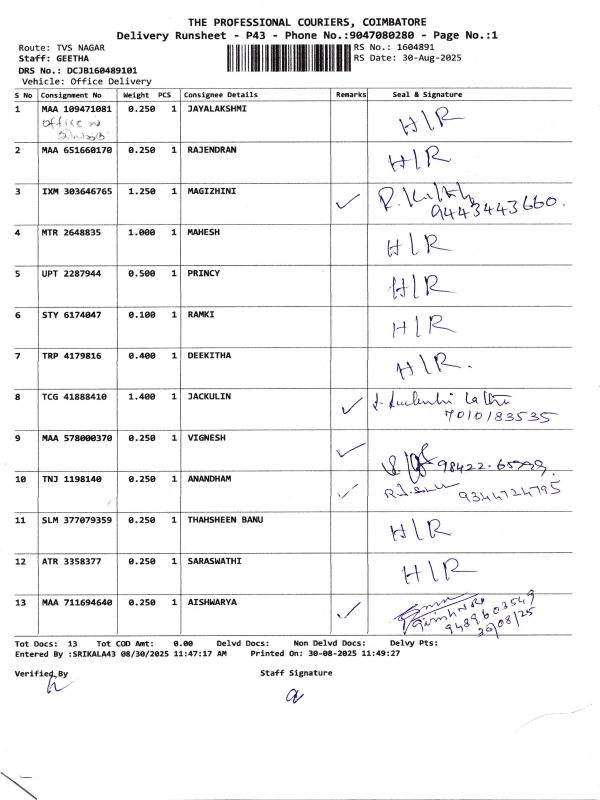 THE PROFESSIONAL COURIERS, COIMBATORE
Delivery Runsheet - P43 - Phone No.:9047080280 - Page No.:1
Route: TVS NAGAR
RS No.: 1604891
Staff: GEETHA
RS Date: 30-Aug-2025
DRS No.: DCJB160489101
Vehicle: Office Delivery
S No Consignment No Weight PCS Consignee Details Remarks Seal & Signature
1 MAA 109471081 0.250 1 JAYALAKSHMI H/R
office
2 MAA 651660170 0.250 1 RAJENDRAN H/R
3 IXM 303646765 1.250 1 MAGIZHINI ✓ R.
9443443660.
4 MTR 2648835 1.000 1 MAHESH H/R
5 UPT 2287944 0.500 1 PRINCY H/R
6 STY 6174047 0.100 1 RAMKI H/R
7 TRP 4179816 0.400 1 DEEKITHA H/R.
8 TCG 41888410 1.400 1 JACKULIN ✓
7010183535
9 MAA 578000370 0.250 1 VIGNESH ✓
98422-65799
10 TNJ 1198140 0.250 1 ANANDHAM ✓ 9344724795
11 SLM 377079359 0.250 1 THAHSHEEN BANU H/R
12 ATR 3358377 0.250 1 SARASWATHI H/R
13 MAA 711694640 0.250 1 AISHWARYA ✓
9489603549
30/08/25
Tot Docs: 13 Tot COD Amt: 0.00 Delvd Docs: Non Delvd Docs: Delvy Pts:
Entered By :SRIKALA43 08/30/2025 11:47:17 AM Printed On: 30-08-2025 11:49:27
Verified By Staff Signature